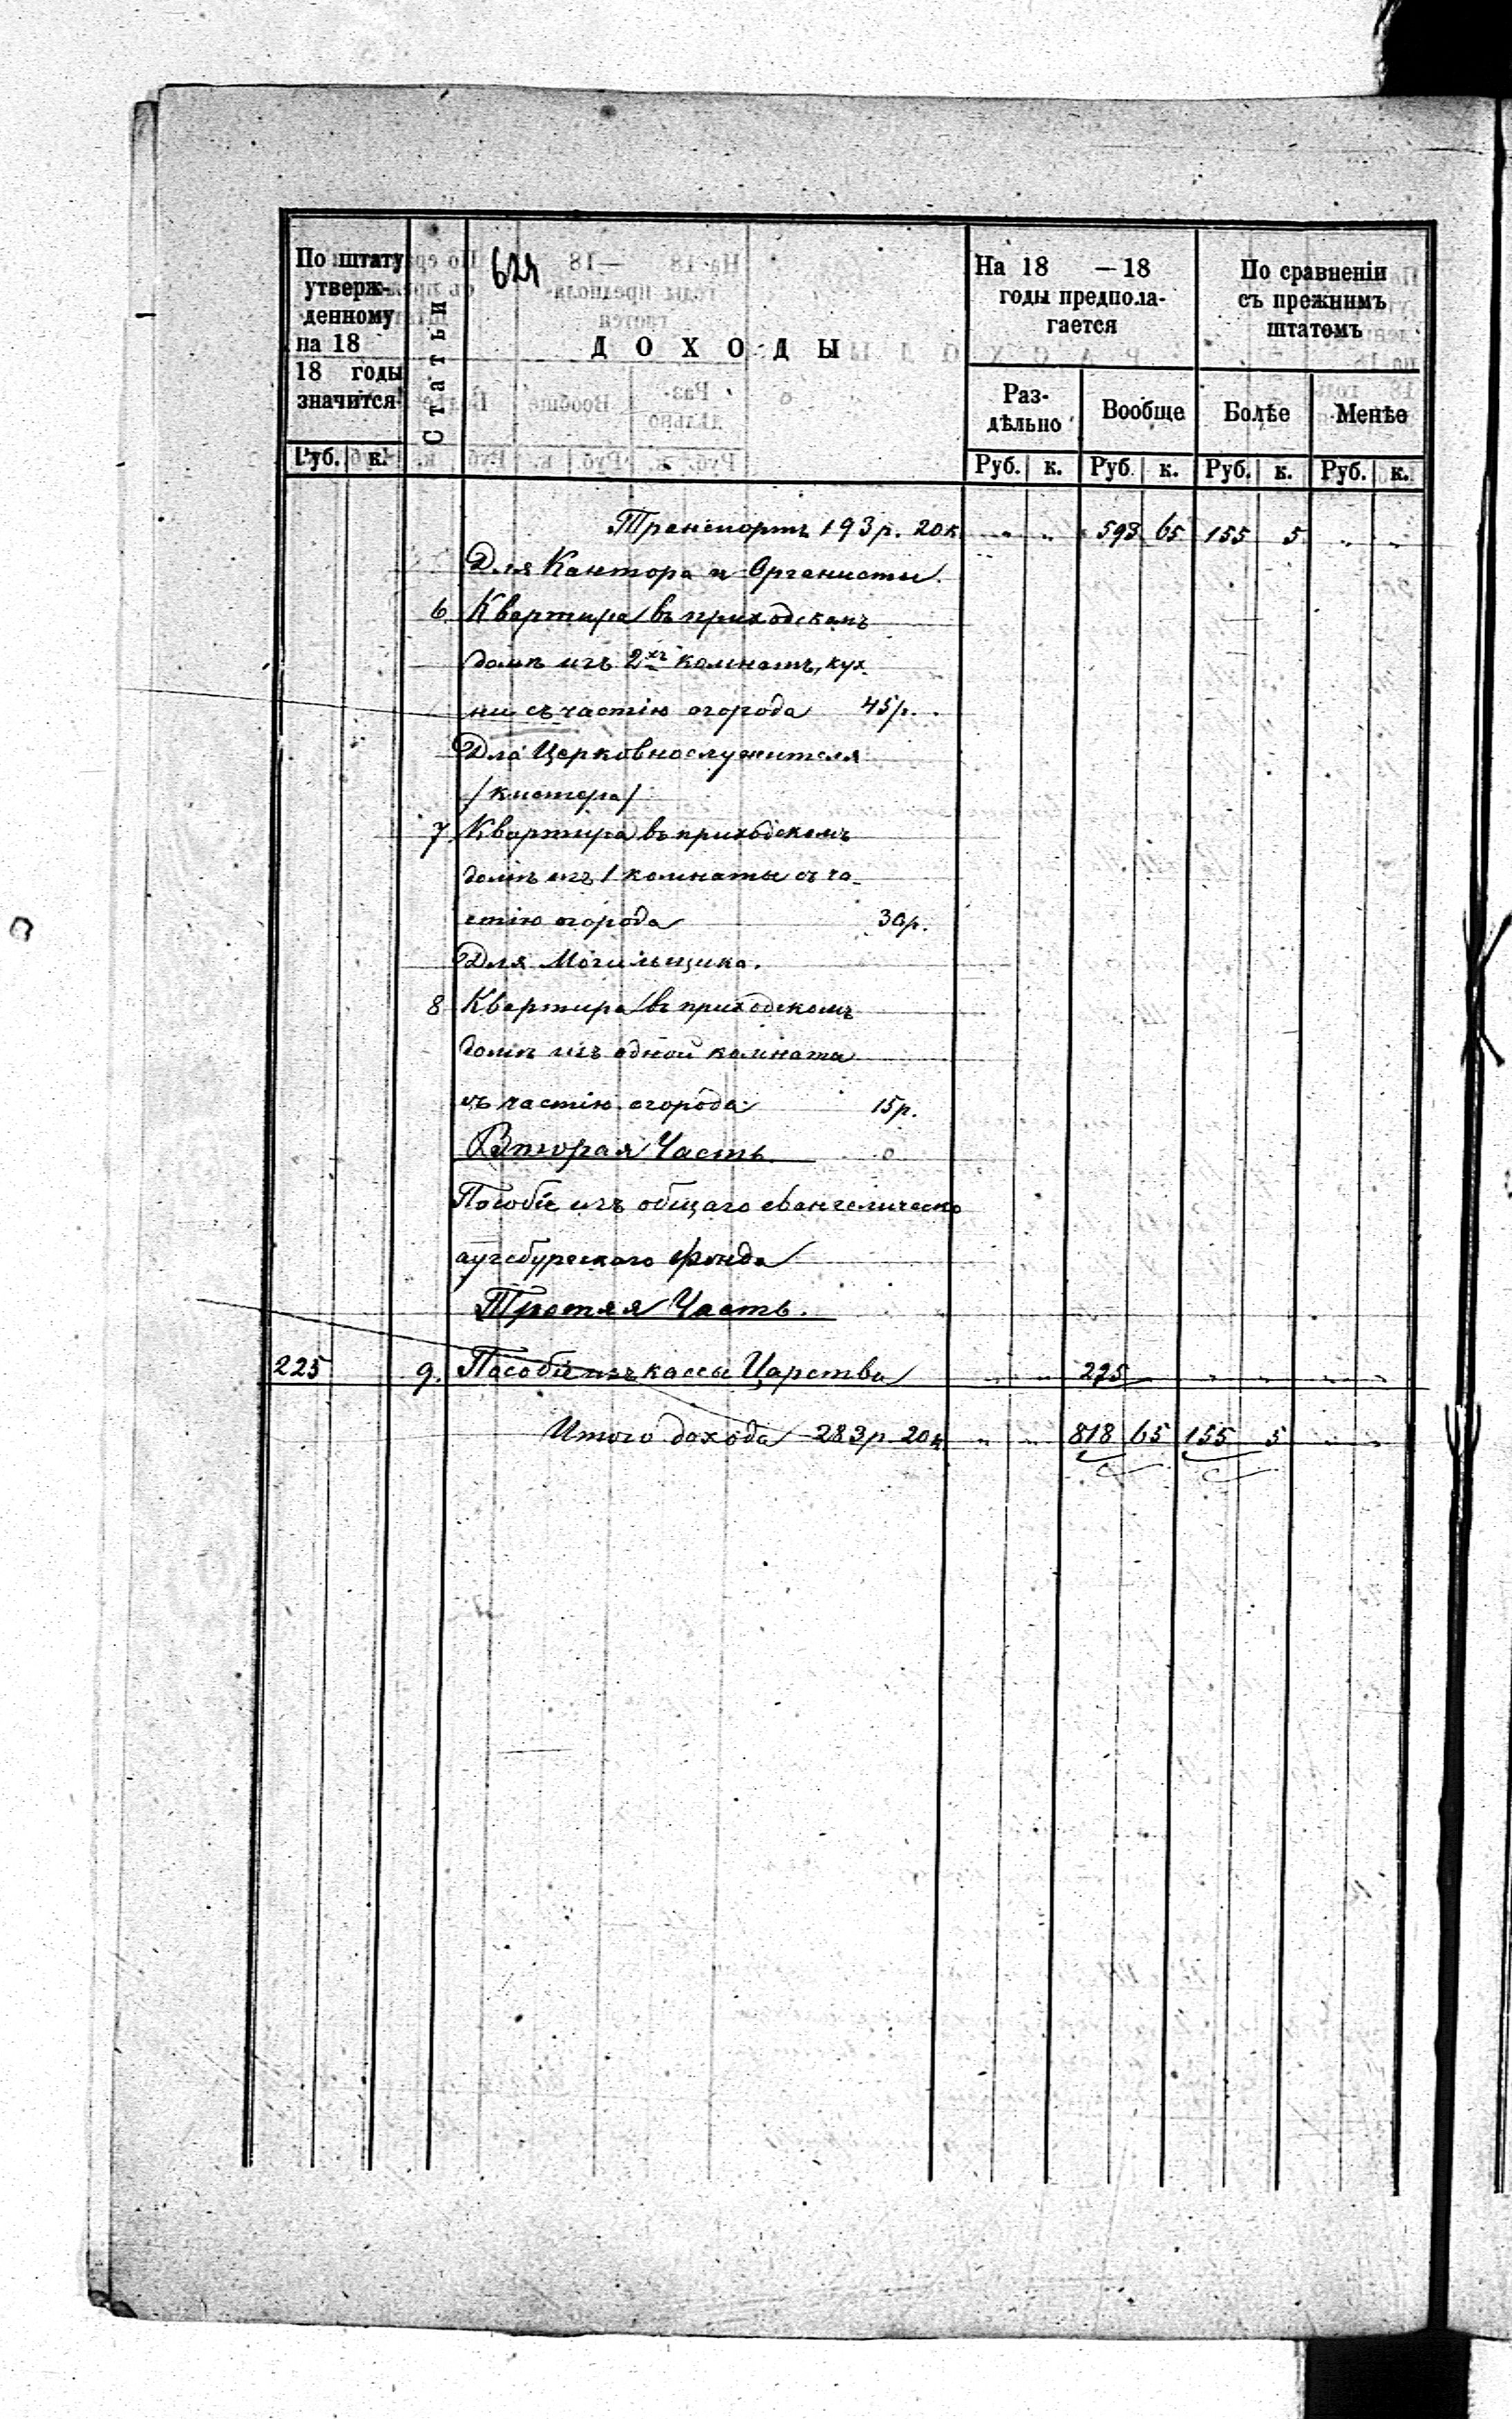 624
По штату
утверж-
денному
на 18
18 годы
значится
Статьи
ДОХОДЫ
На 18 —18
годы предпола-
гается
По сравненiи
съ прежнимъ
штатомъ
Раз-
дѣльно
Вообще
Болѣе
Менѣе
Руб. к. Руб. к. Руб. к. Руб. к. Руб. к.
Транспортъ 193 р. 20 к. „ „ 593 65 155 5 „ „
Для Кантора и Органисты.
6. Квартира въ приходскомъ
домѣ изъ 2хъ комнатъ, кух-
ни съ частiю огорода 45 р.
Для Церковнослужителя
/кистера/
7. Квартира въ приходскомъ
домѣ изъ 1 комнаты съ ча-
стiю огорода 30 р.
Для Могильщика.
8 Квартира въ приходскомъ
домѣ изъ одной комнаты
съ частiю огорода 15 р.
Вторая Часть
Пособiе изъ общаго евангелическо
аугсбургскаго фонда
Третяя Часть.
225 9. Пособiе изъ кассы Царства „ „ 225 „ „ „ „
Итого дохода 283 р 20 к „ „ 818 65 155 5 „ „